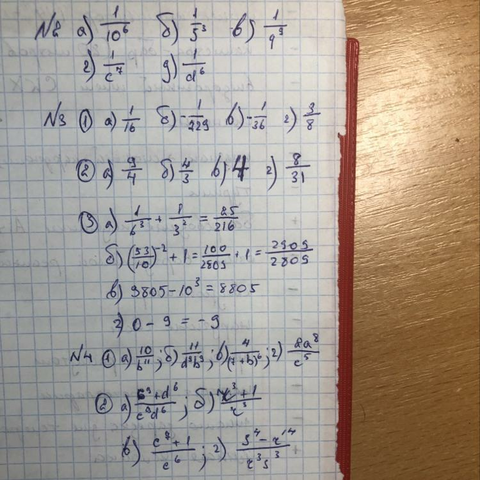 №2 а) 1/10⁶ б) 1/5³ в) 1/9⁹
г) 1/c⁷ д) 1/d⁶
№3 ① а) 1/16 б) -1/229 в) -1/36 г) 3/8
② а) 9/4 б) 4/3 в) 4 г) 8/31
③ а) 1/6³ + 1/3² = 25/216
б) (53/10)⁻² + 1 = 100/2809 + 1 = 2909/2809
в) 9805 - 10³ = 8805
г) 0 - 9 = -9
№4 ① а) 10/b¹¹; б) 11/d⁹b⁹; в) 4/(7+b)⁶; г) 2a⁸/c⁵
② а) c⁹+d⁶/c⁹d⁶; б) r³+1/r³
в) c⁷+1/c⁶; г) s⁴-r¹⁴/r³s³